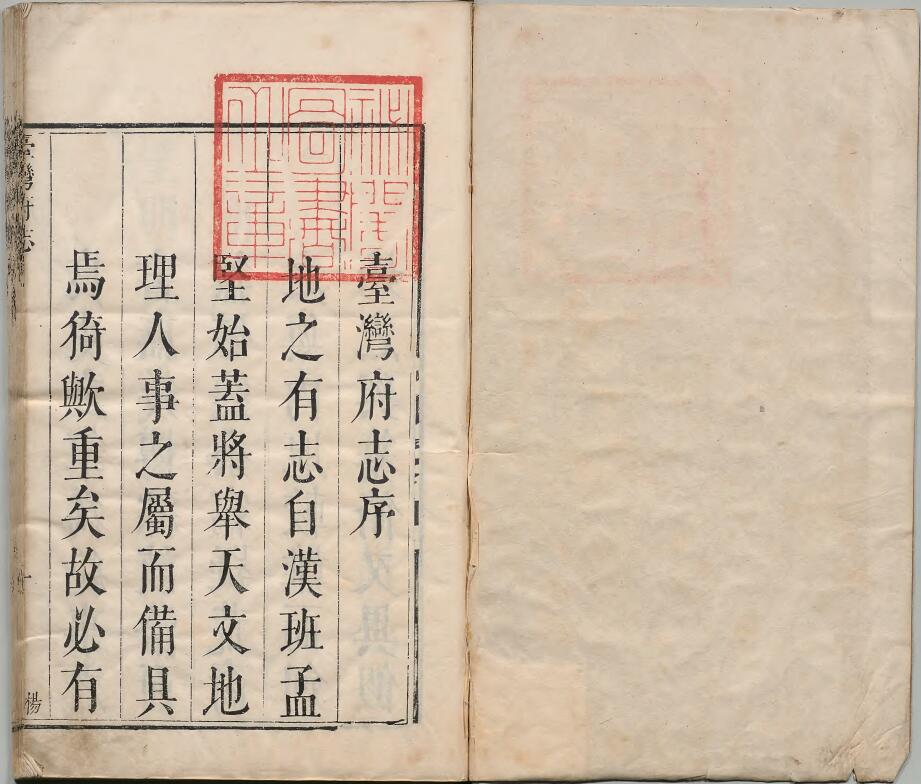 秘閣
圖書
之章
臺灣府志序
地之有志自漢班孟
堅始蓋將舉天文地
理人事之屬而備具
焉猗歟重矣故必有
臺灣府志
一
楊